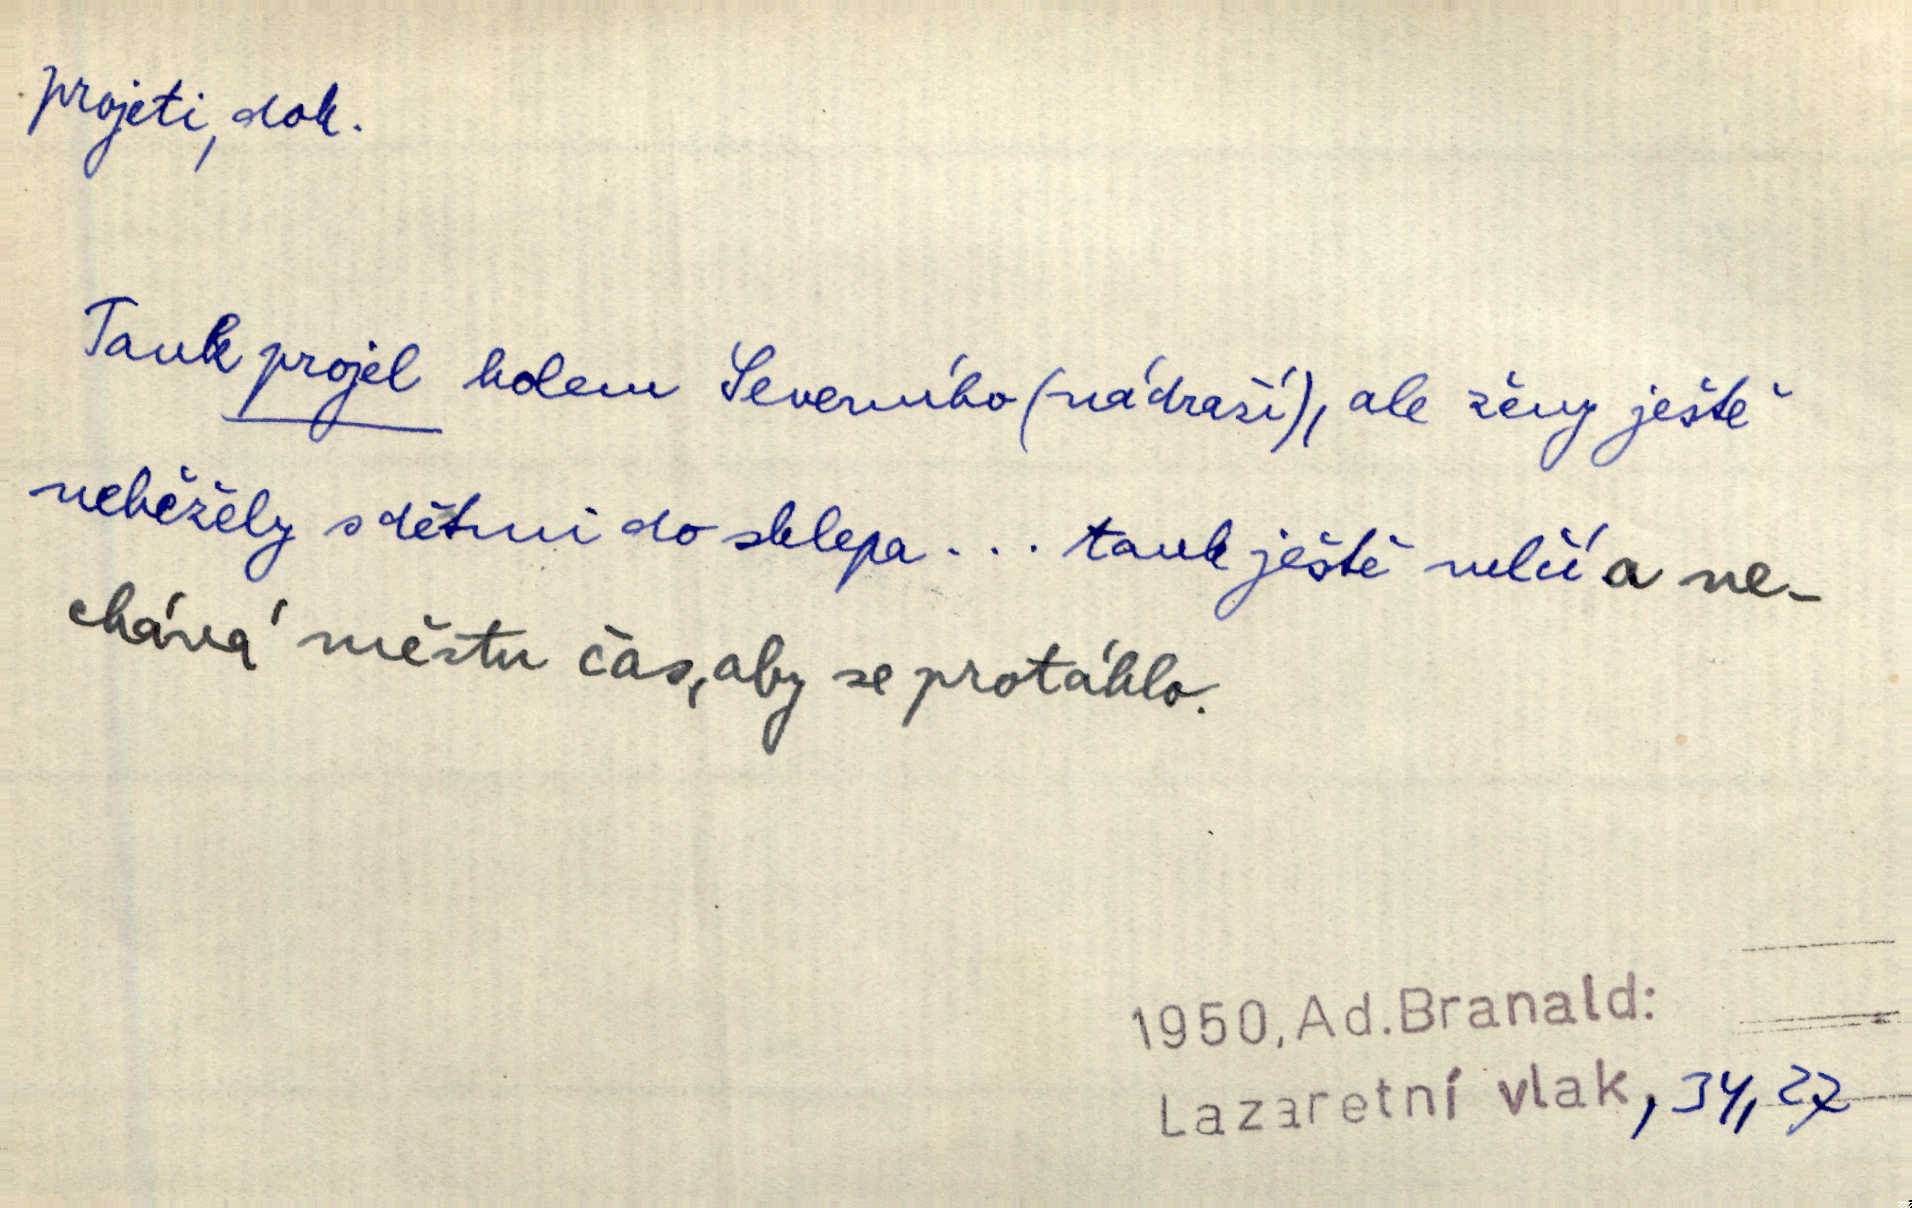 projeti, dok.
Tank projel kolem Severního (nádraží), ale ženy ještě
neběžely s dětmi do sklepa . . . tank ještě mlčí a ne-
chává městu čas, aby se protáhlo.
1950, Ad. Branald:
Lazaretní vlak, 34, 27